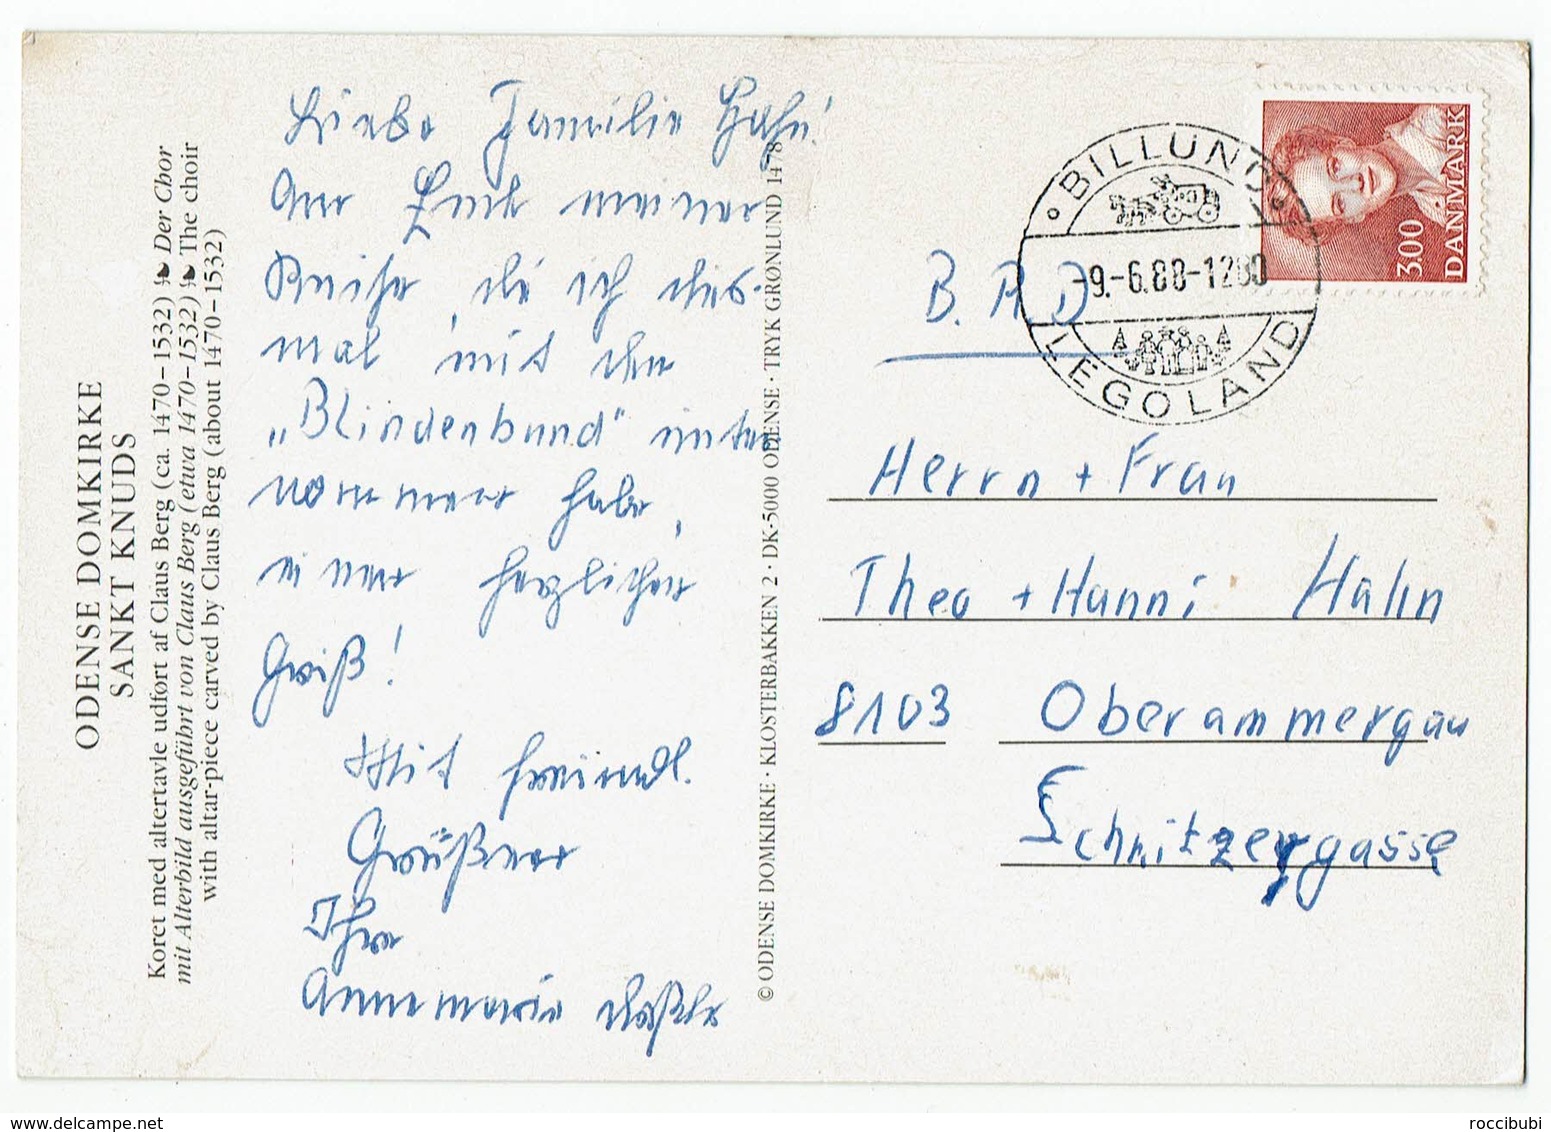 ODENSE DOMKIRKE
SANKT KNUDS
Koret med altertavle udført af Claus Berg (ca. 1470–1532) ❧ Der Chor
mit Alterbild ausgeführt von Claus Berg (etwa 1470–1532) ❧ The choir
with altar-piece carved by Claus Berg (about 1470–1532)
Liebe Familie Hahn!
Am Ende meiner
Reise, die ich dies-
mal mit dem
„Blindenbund" unter
nommen habe,
einen herzlichen
Gruß!
Mit freundl.
Grüßen
Ihre
Annemarie
© ODENSE DOMKIRKE · KLOSTERBAKKEN 2 · DK-5000 ODENSE · TRYK GRØNLUND 1478
DANMARK
3.00
BILLUND
9.-6.88-1200
LEGOLAND
B.R.D
Herrn + Frau
Theo + Hanni Hahn
8103 Oberammergau
Schnitzergasse
roccibubi